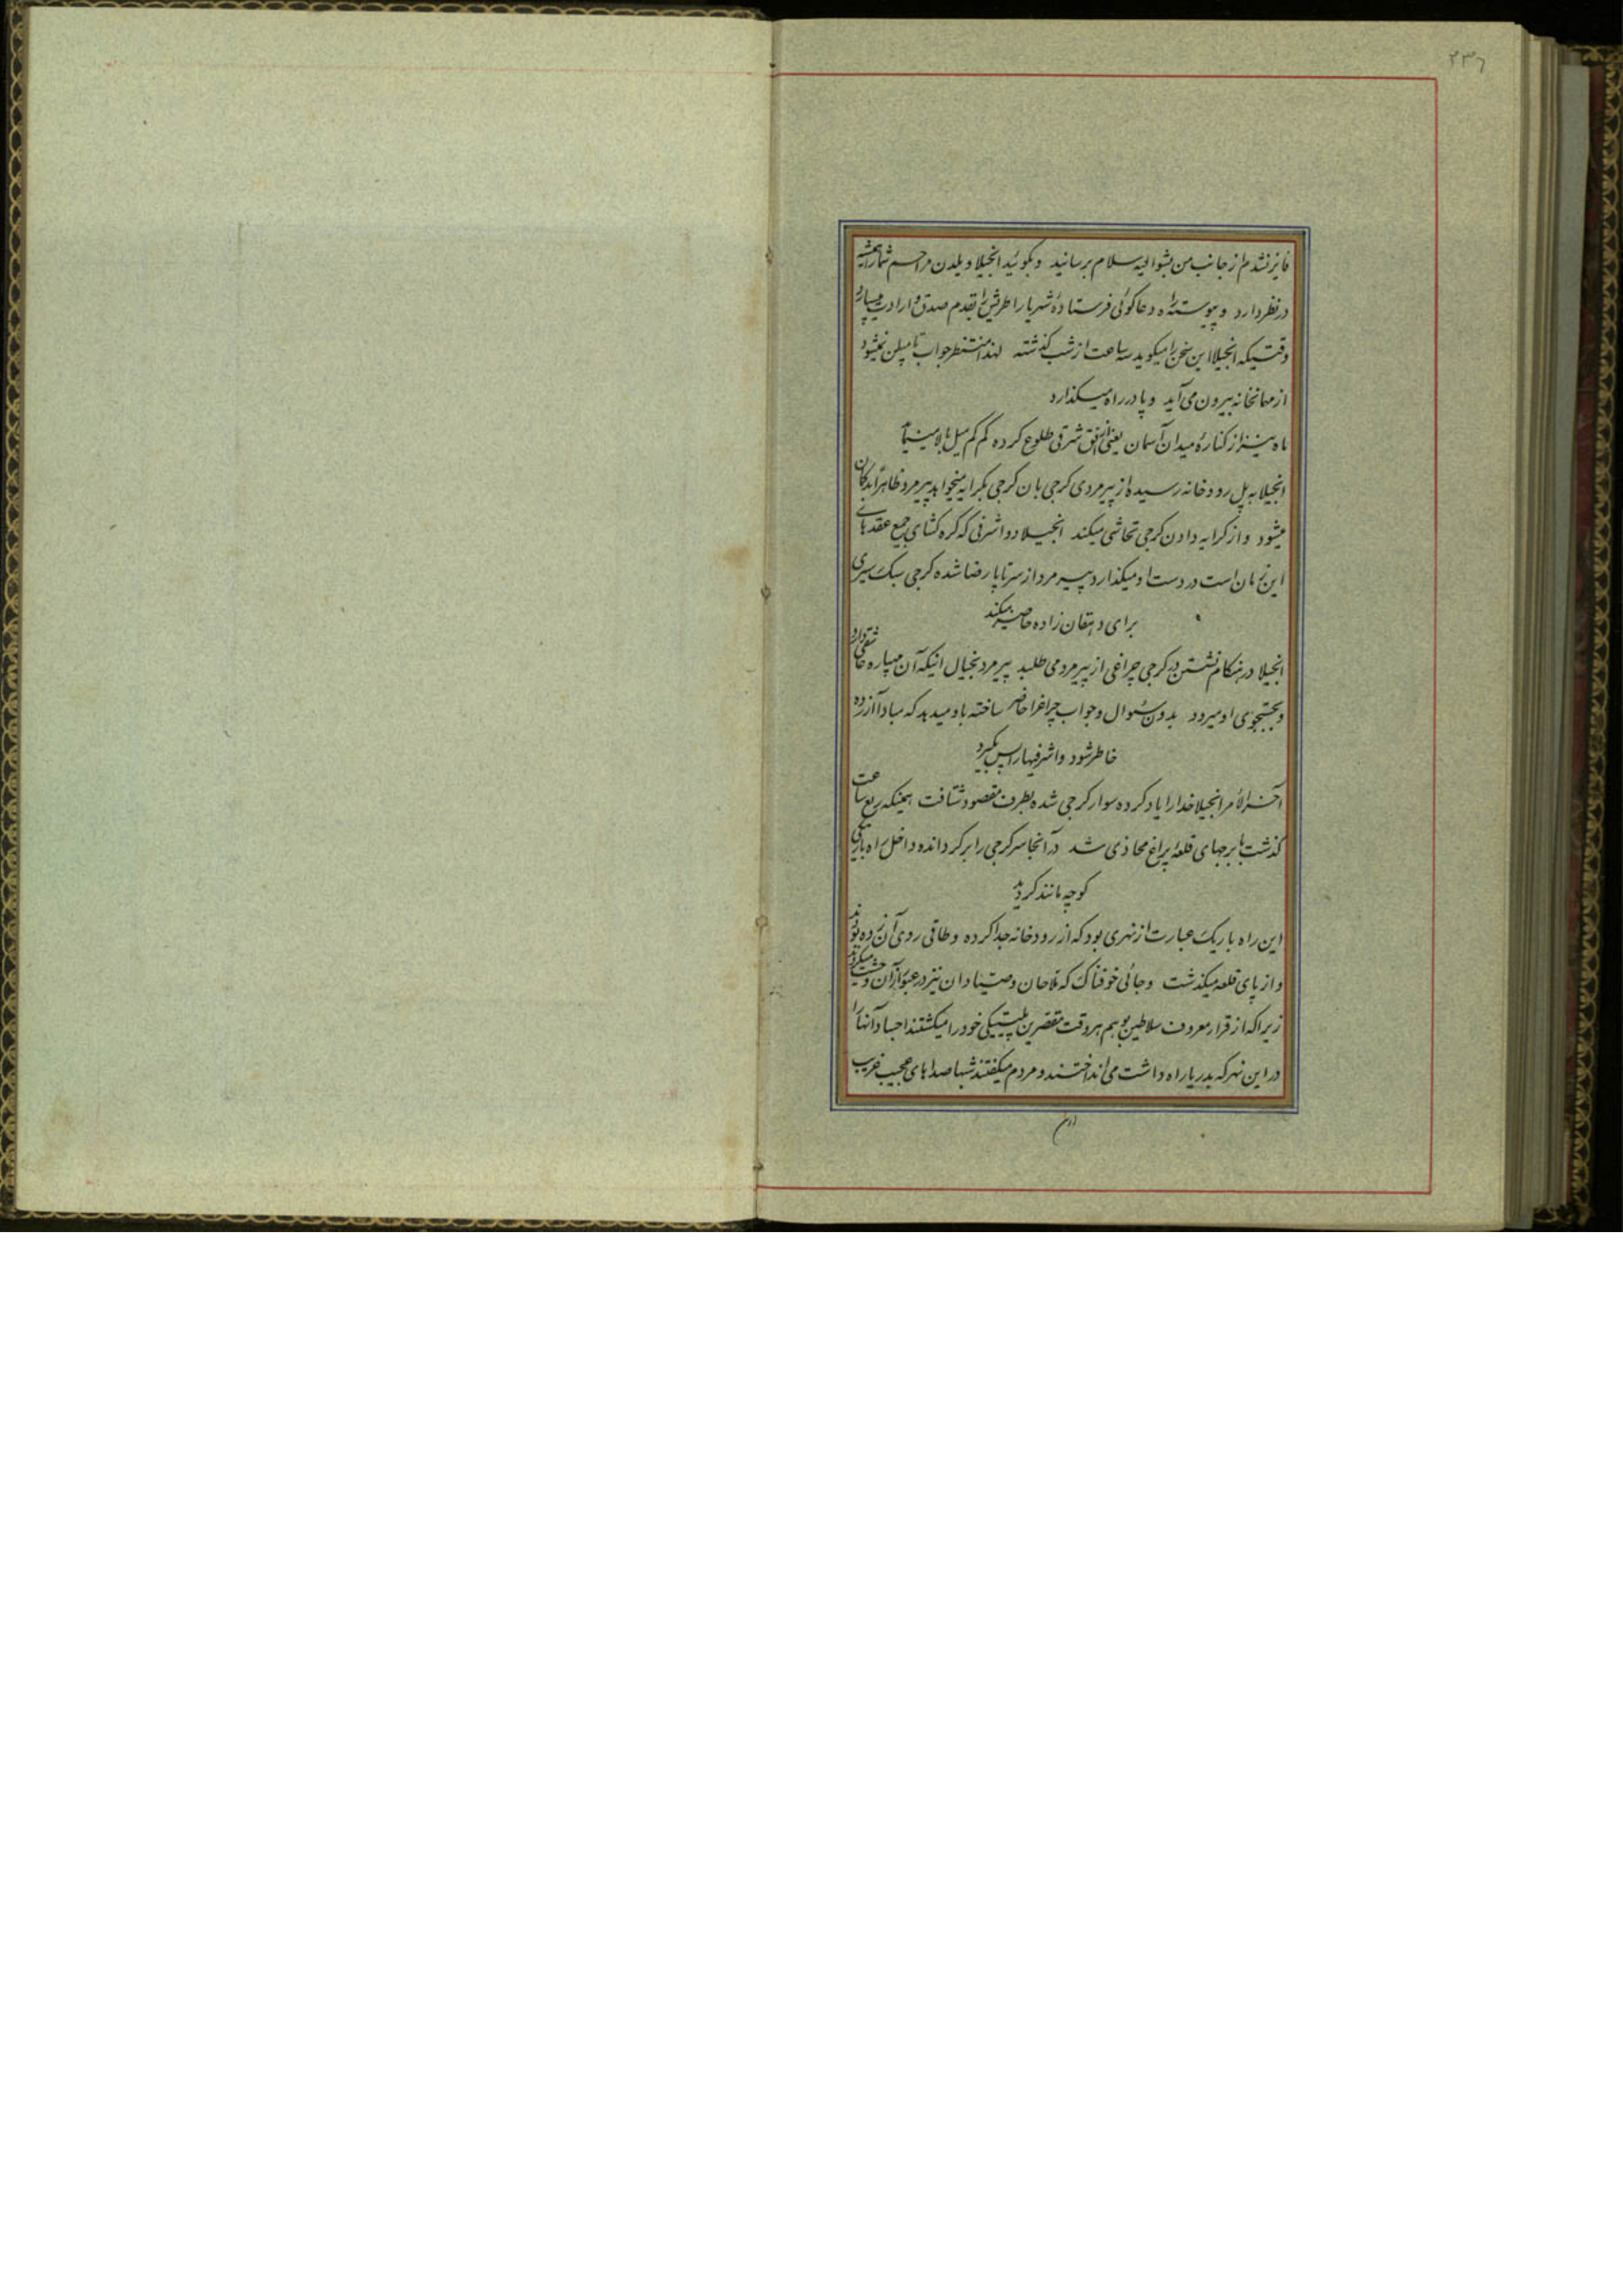 ۲۳۶
فایز نشدم از جانب من بشوالیه سلام برسانید و بگوئید انجیلا ویلدن مراحم شما را همیشه
در نظر دارد و پیوسته راه دعاگوئی فرستادهٔ شهریار اطریش را بقدم صدق و ارادت میسپارد
وقتیکه انجیلا این سخن را میگوید سه ساعت از شب گذشته لهذا منتظر جواب تامپلن نمیشود
از مهمانخانه بیرون می‌آید و پا در راه میگذارد
ماه نیز از کنارهٔ میدان آسمان یعنی از افق شرقی طلوع کرده کم کم میل ببالا مینماید
انجیلا به پل رودخانه رسیده از پیرمردی کرجی بان کرجی بکرایه میخواهد پیرمرد ظاهراً بدگمان
میشود و از کرایه دادن کرجی تحاشی میکند انجیلا دو اشرفی که گره گشای جمیع عقدهای
این زمان است در دست او میگذارد پیرمرد از سر تا پا رضا شده کرجی سبک سیری
برای دهقان زاده حاضر میکند
انجیلا در هنگام نشستن در کرجی چراغی از پیرمرد می طلبد پیرمرد بخیال اینکه آن مهپاره عاشقی دارد
و بجستجوی او میرود بدون سئوال و جواب چراغرا حاضر ساخته باو میدهد که مبادا آزرده
خاطر شود و اشرفیها را پس بگیرد
آخر الأمر انجیلا خدا را یاد کرده سوار کرجی شده بطرف مقصود شتافت همینکه ربع ساعت
گذشت با برجهای قلعهٔ پراغ محاذی شد در آنجا سر کرجی را برگردانده داخل راه باریکی
کوچه مانند گردید
این راه باریک عبارت از نهری بود که از رودخانه جدا کرده و طاقی روی آن زده بودند
و از پای قلعه میگذشت و جائی خوفناک که ملاحان و صیادان نیز در عبور از آن وحشت میکردند
زیرا که از قرار معروف سلاطین بوهم هر وقت مقصرین پلیتیکی خود را میکشتند اجساد آنها را
در این نهر که بدریا راه داشت می انداختند و مردم میگفتند شبها صداهای عجیب غریب